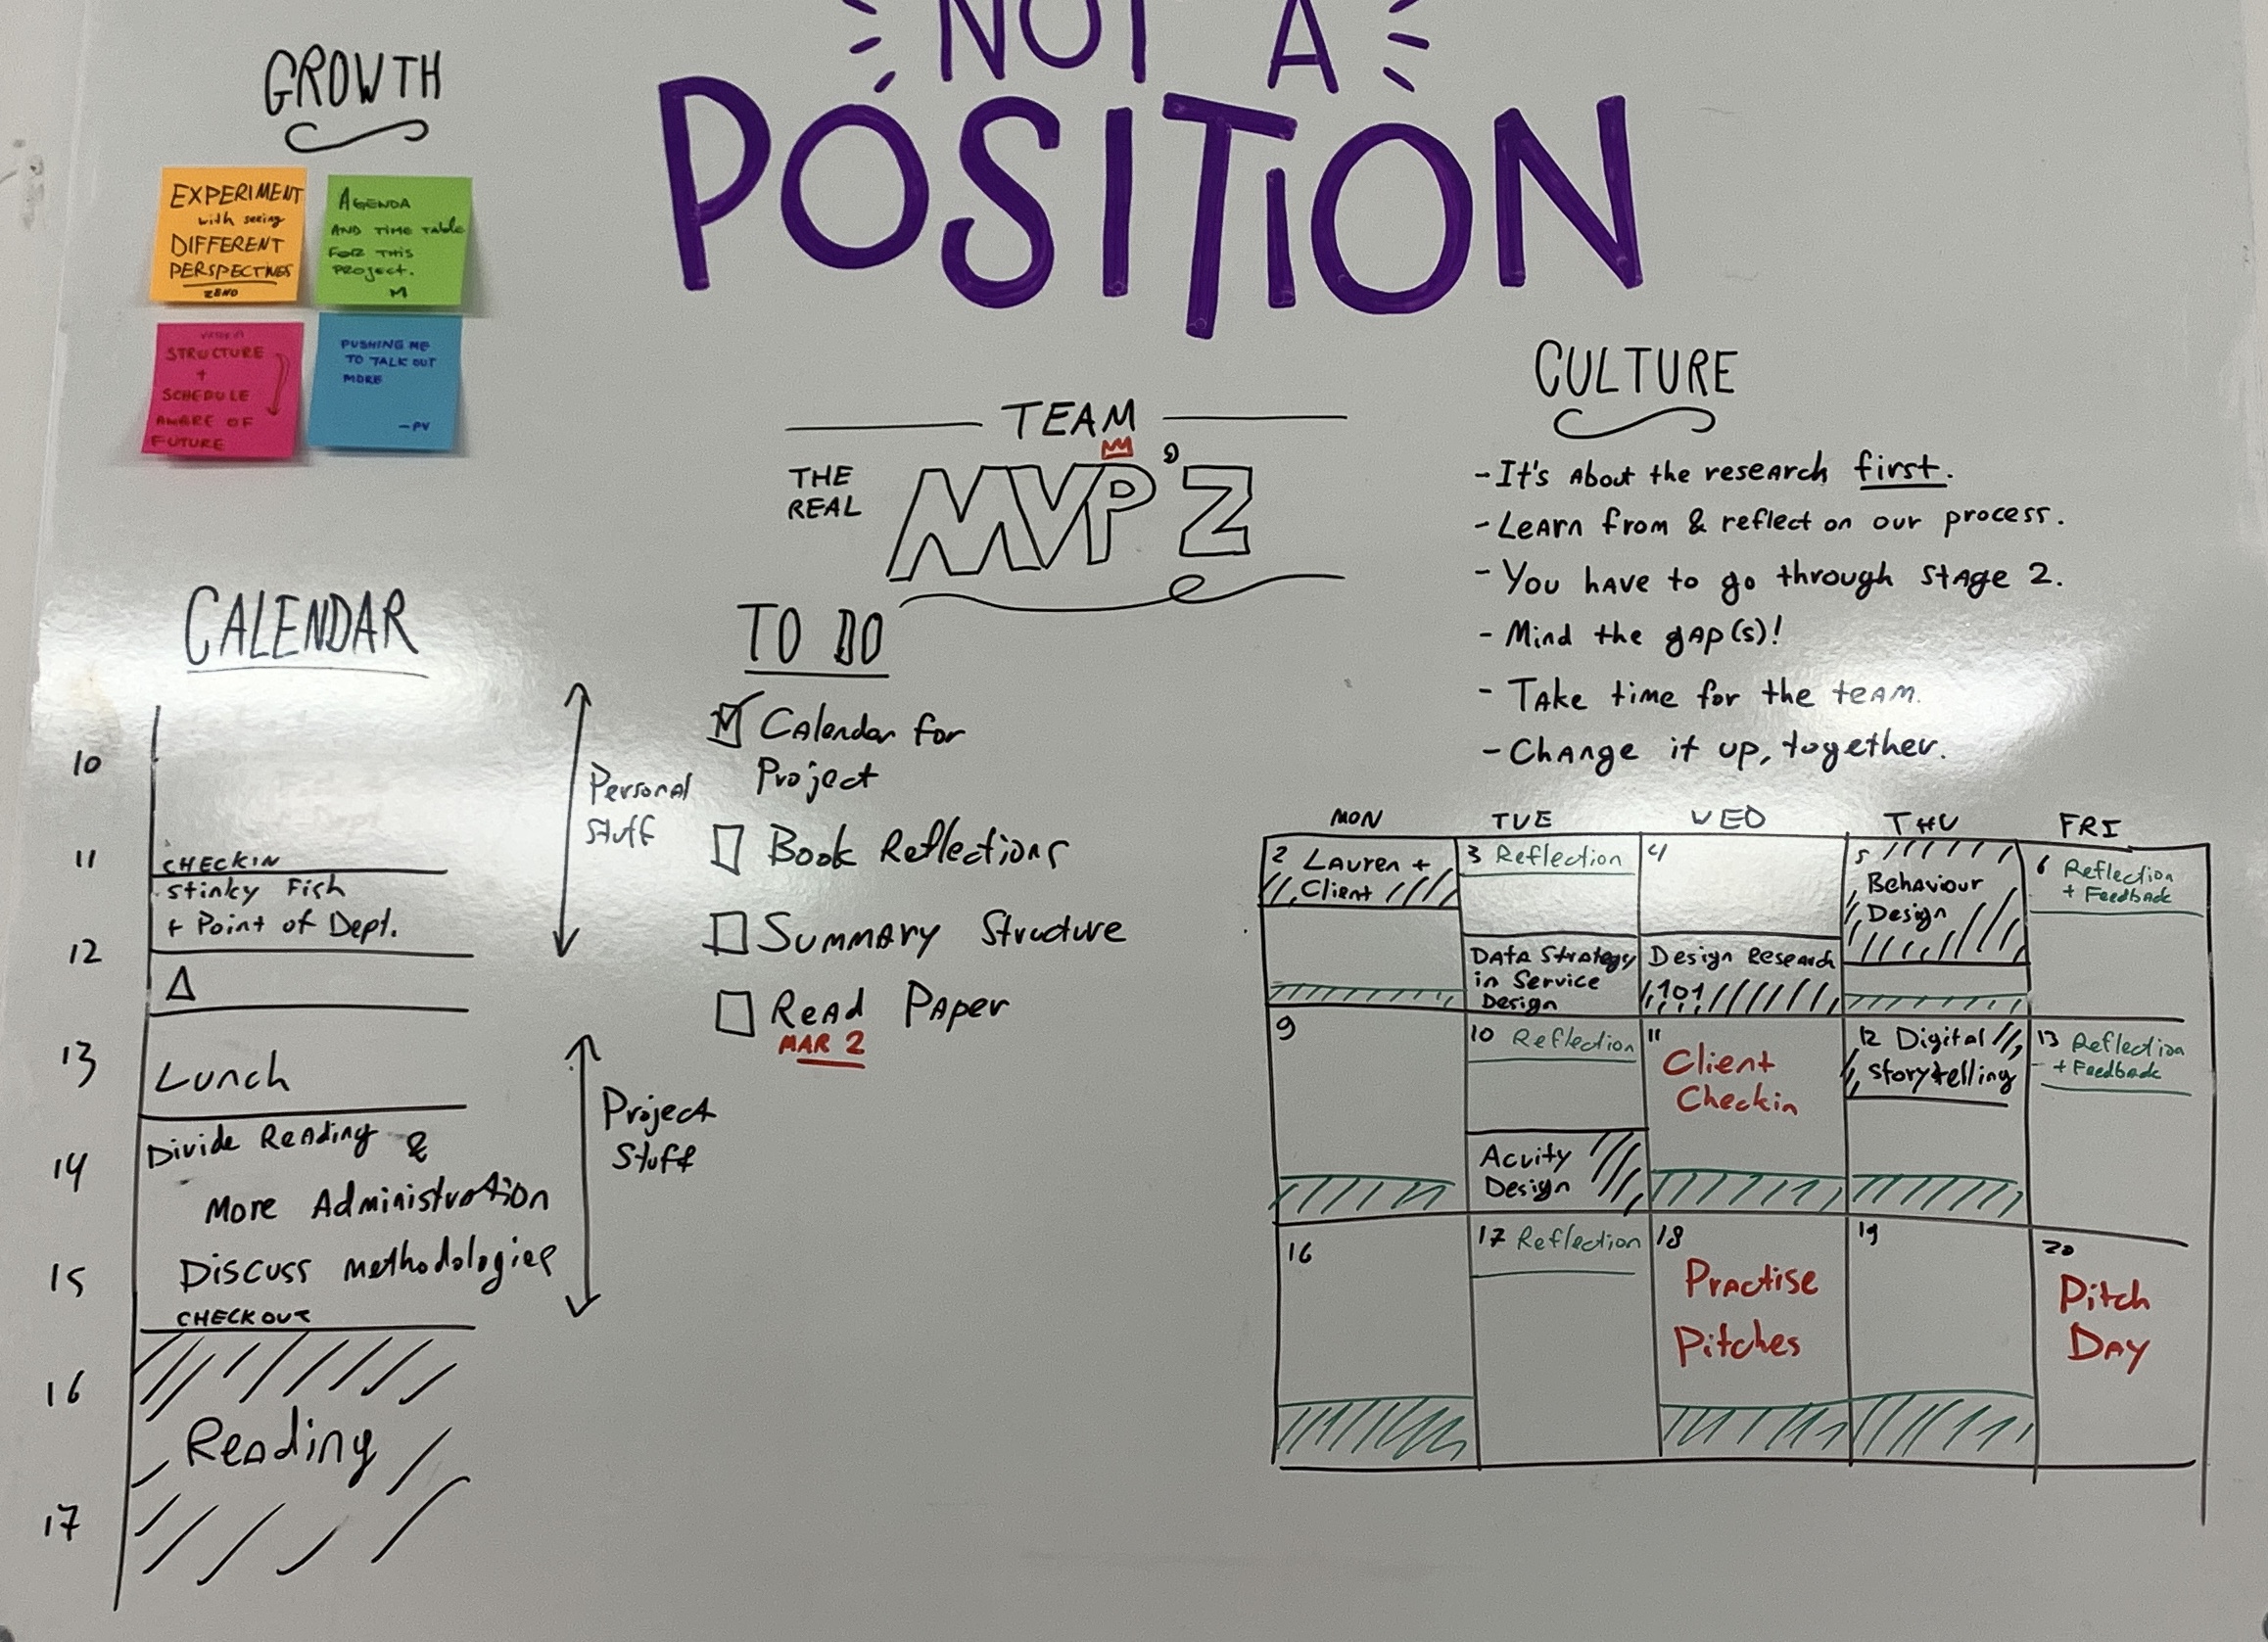 NOT A
POSITION
GROWTH
EXPERIMENT
with seeing
DIFFERENT
PERSPECTIVES
ZENO
AGENDA
AND TIME TABLE
FOR THIS
PROJECT.
M
STRUCTURE
+
SCHEDULE
AWARE OF
FUTURE
PUSHING ME
TO TALK OUT
MORE
-PV
TEAM
THE
REAL
MVP'Z
CULTURE
- It's about the research first.
- Learn from & reflect on our process.
- You have to go through stage 2.
- Mind the gap(s)!
- Take time for the team.
- Change it up, together.
CALENDAR
10
11
CHECKIN
Stinky Fish
+ Point of Dept.
12
Δ
13
Lunch
Divide Reading &
14
More Administration
15
Discuss methodologies
CHECKOUT
16
Reading
17
Personal
Stuff
Project
Stuff
TO DO
Calendar for
Project
Book Reflections
Summary Structure
Read Paper
MAR 2
MON TUE WED THU FRI
2 Lauren +
Client
3 Reflection
Data Strategy
in Service
Design
4
Design Research
101
5
Behaviour
Design
6 Reflection
+ Feedback
9
10 Reflection
Acuity
Design
11
Client
Checkin
12 Digital
Storytelling
13 Reflection
+ Feedback
16
17 Reflection
18
Practise
Pitches
19
20
Pitch
Day